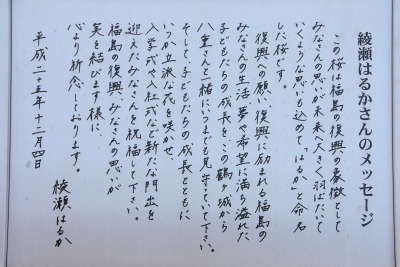 綾瀬はるかさんのメッセージ
この桜は福島の復興の象徴として
みなさんの思いが未来へ大きく羽ばたいて
いくような思いも込めて、「はるか」と命名
した桜です。
復興への願い、復興に励まれる福島の
みなさんの生活、夢や希望に満ち溢れた
子どもたちの成長を、この鶴ヶ城から
八重さんと一緒にいつまでも見守っていて下さい。
そして、子どもたちの成長とともに
いつか立派な花を咲かせ、
入学式や入社式など新たな門出を
迎えたみなさんを祝福して下さい。
福島の復興、みなさんの思いが
実を結びます様に、
心より祈念しております。
平成二十五年十二月四日
綾瀬はるか